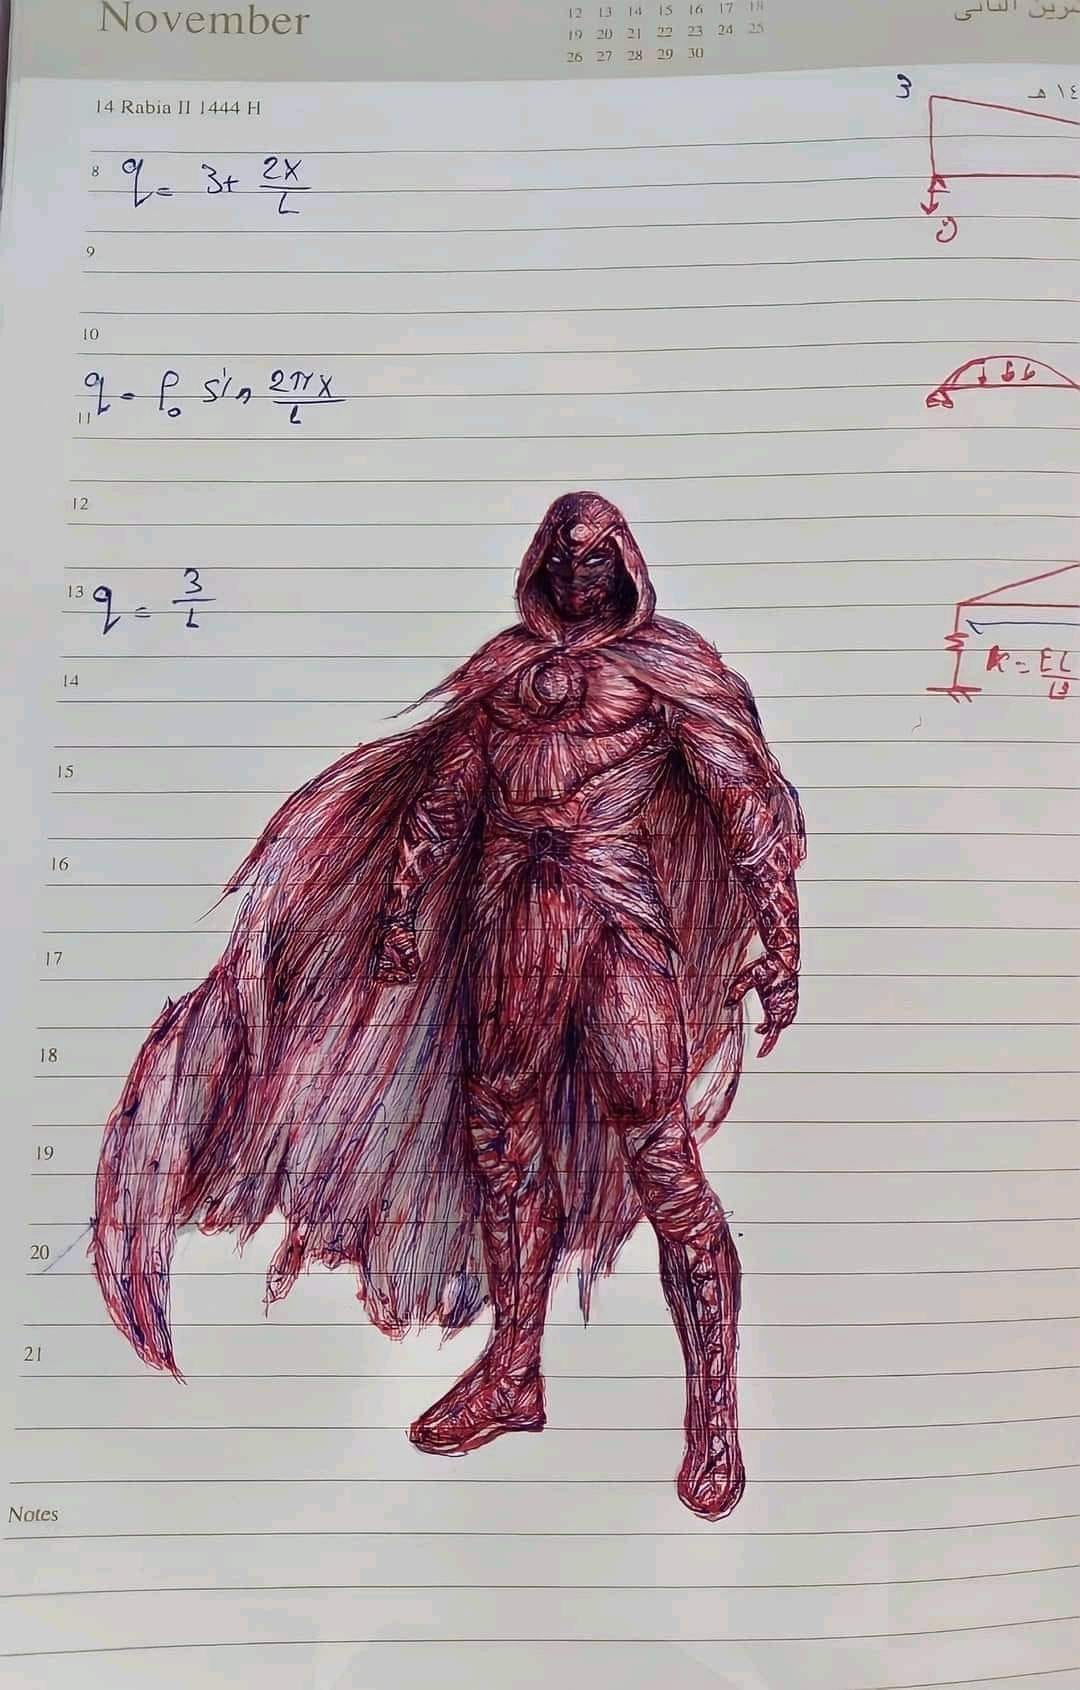 November
12 13 14 15 16 17 18
19 20 21 22 23 24 25
26 27 28 29 30
14 Rabia II 1444 H
3
8
q = 3+ 2x/L
9
10
q = P₀ sin 2πx/L
11
12
13
q = 3/L
14
15
16
17
18
19
20
21
Notes